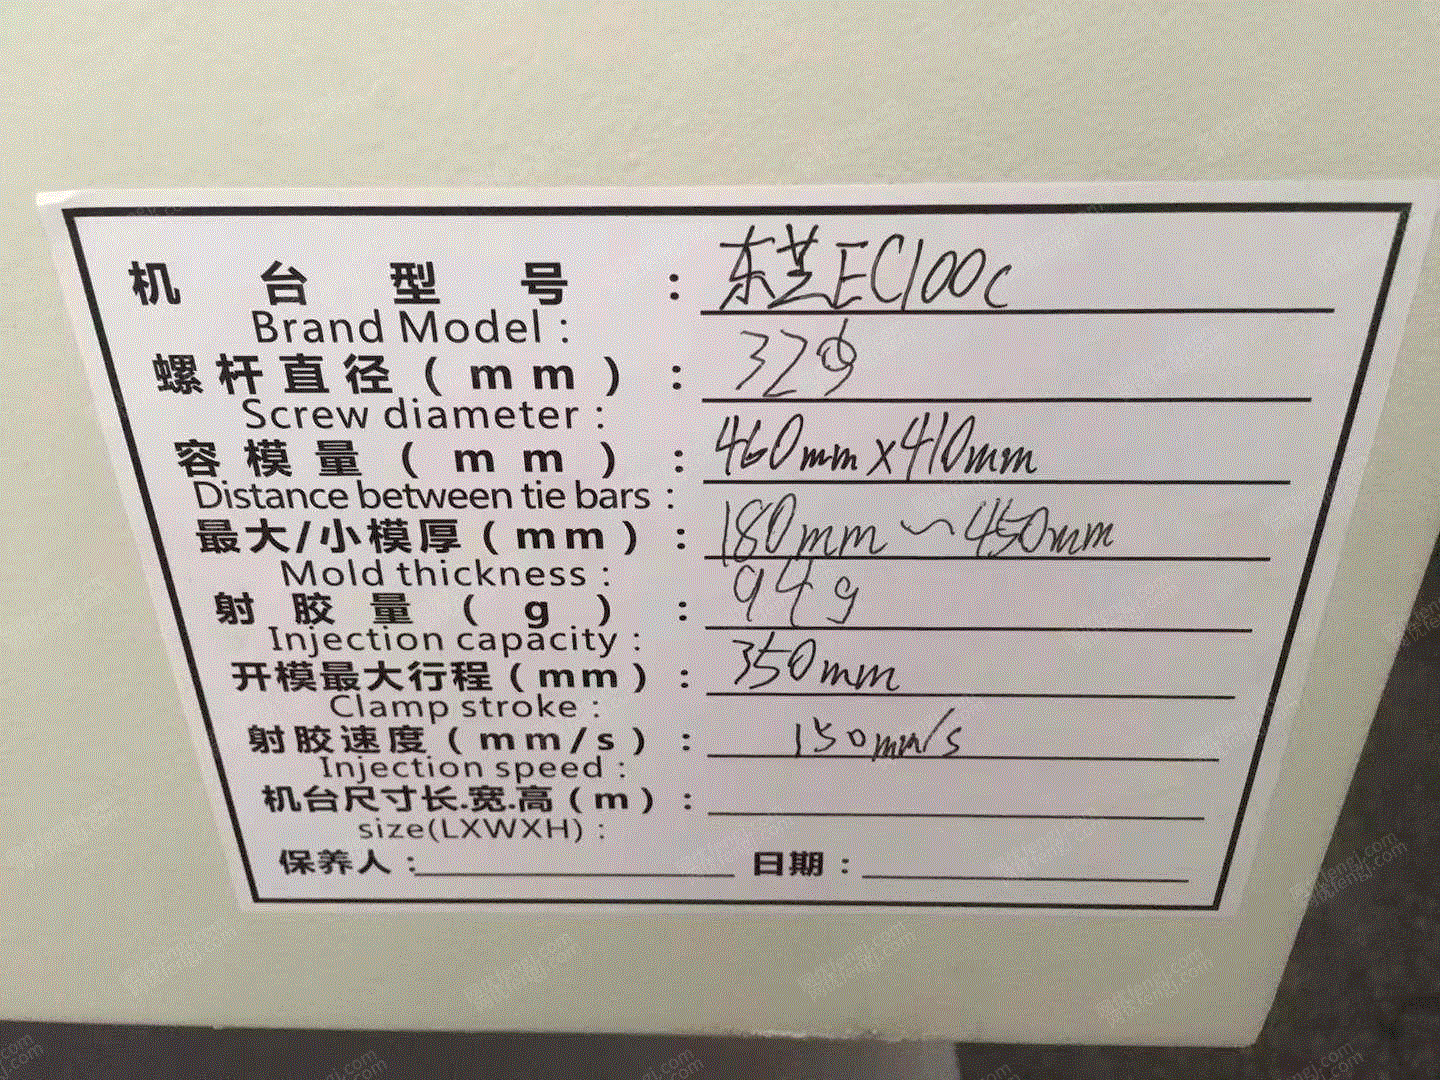 机台型号：东芝EC100c
Brand Model :
螺杆直径(mm)：32φ
Screw diameter :
容模量(mm)：460mm x 410mm
Distance between tie bars :
最大/小模厚(mm)：180mm ~ 450mm
Mold thickness :
射胶量(g)：94g
Injection capacity :
开模最大行程(mm)：350mm
Clamp stroke :
射胶速度(mm/s)：150mm/s
Injection speed :
机台尺寸长.宽.高(m)：
size(LXWXH) :
保养人： 日期：